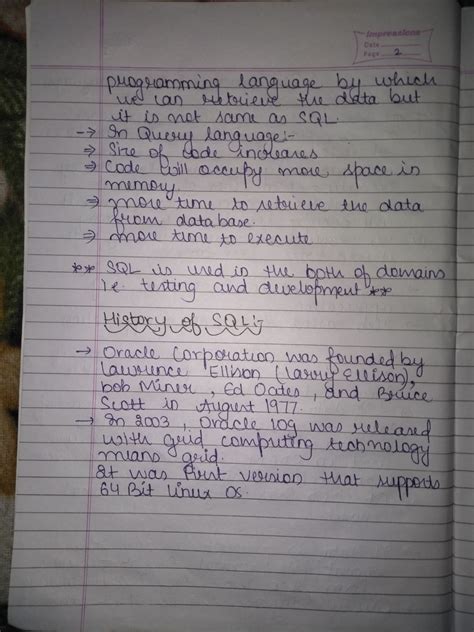 Impressions
Date
Page 2
programming language by which
we can retrieve the data but
it is not same as SQL.
-> In Query language:-
=> Size of code increases
=> Code will occupy more space in
memory.
=> more time to retrieve the data
from database.
=> more time to execute
** SQL is used in the both of domains
i.e. testing and development **
History of SQL:-
-> Oracle Corporation was founded by
Lawrence Ellison (Larry Ellison),
bob Miner, Ed Oates, and Bruce
Scott in August 1977.
-> In 2003, Oracle 10g was released
with grid computing technology
means grid.
It was first version that supports
64 Bit Linux OS.